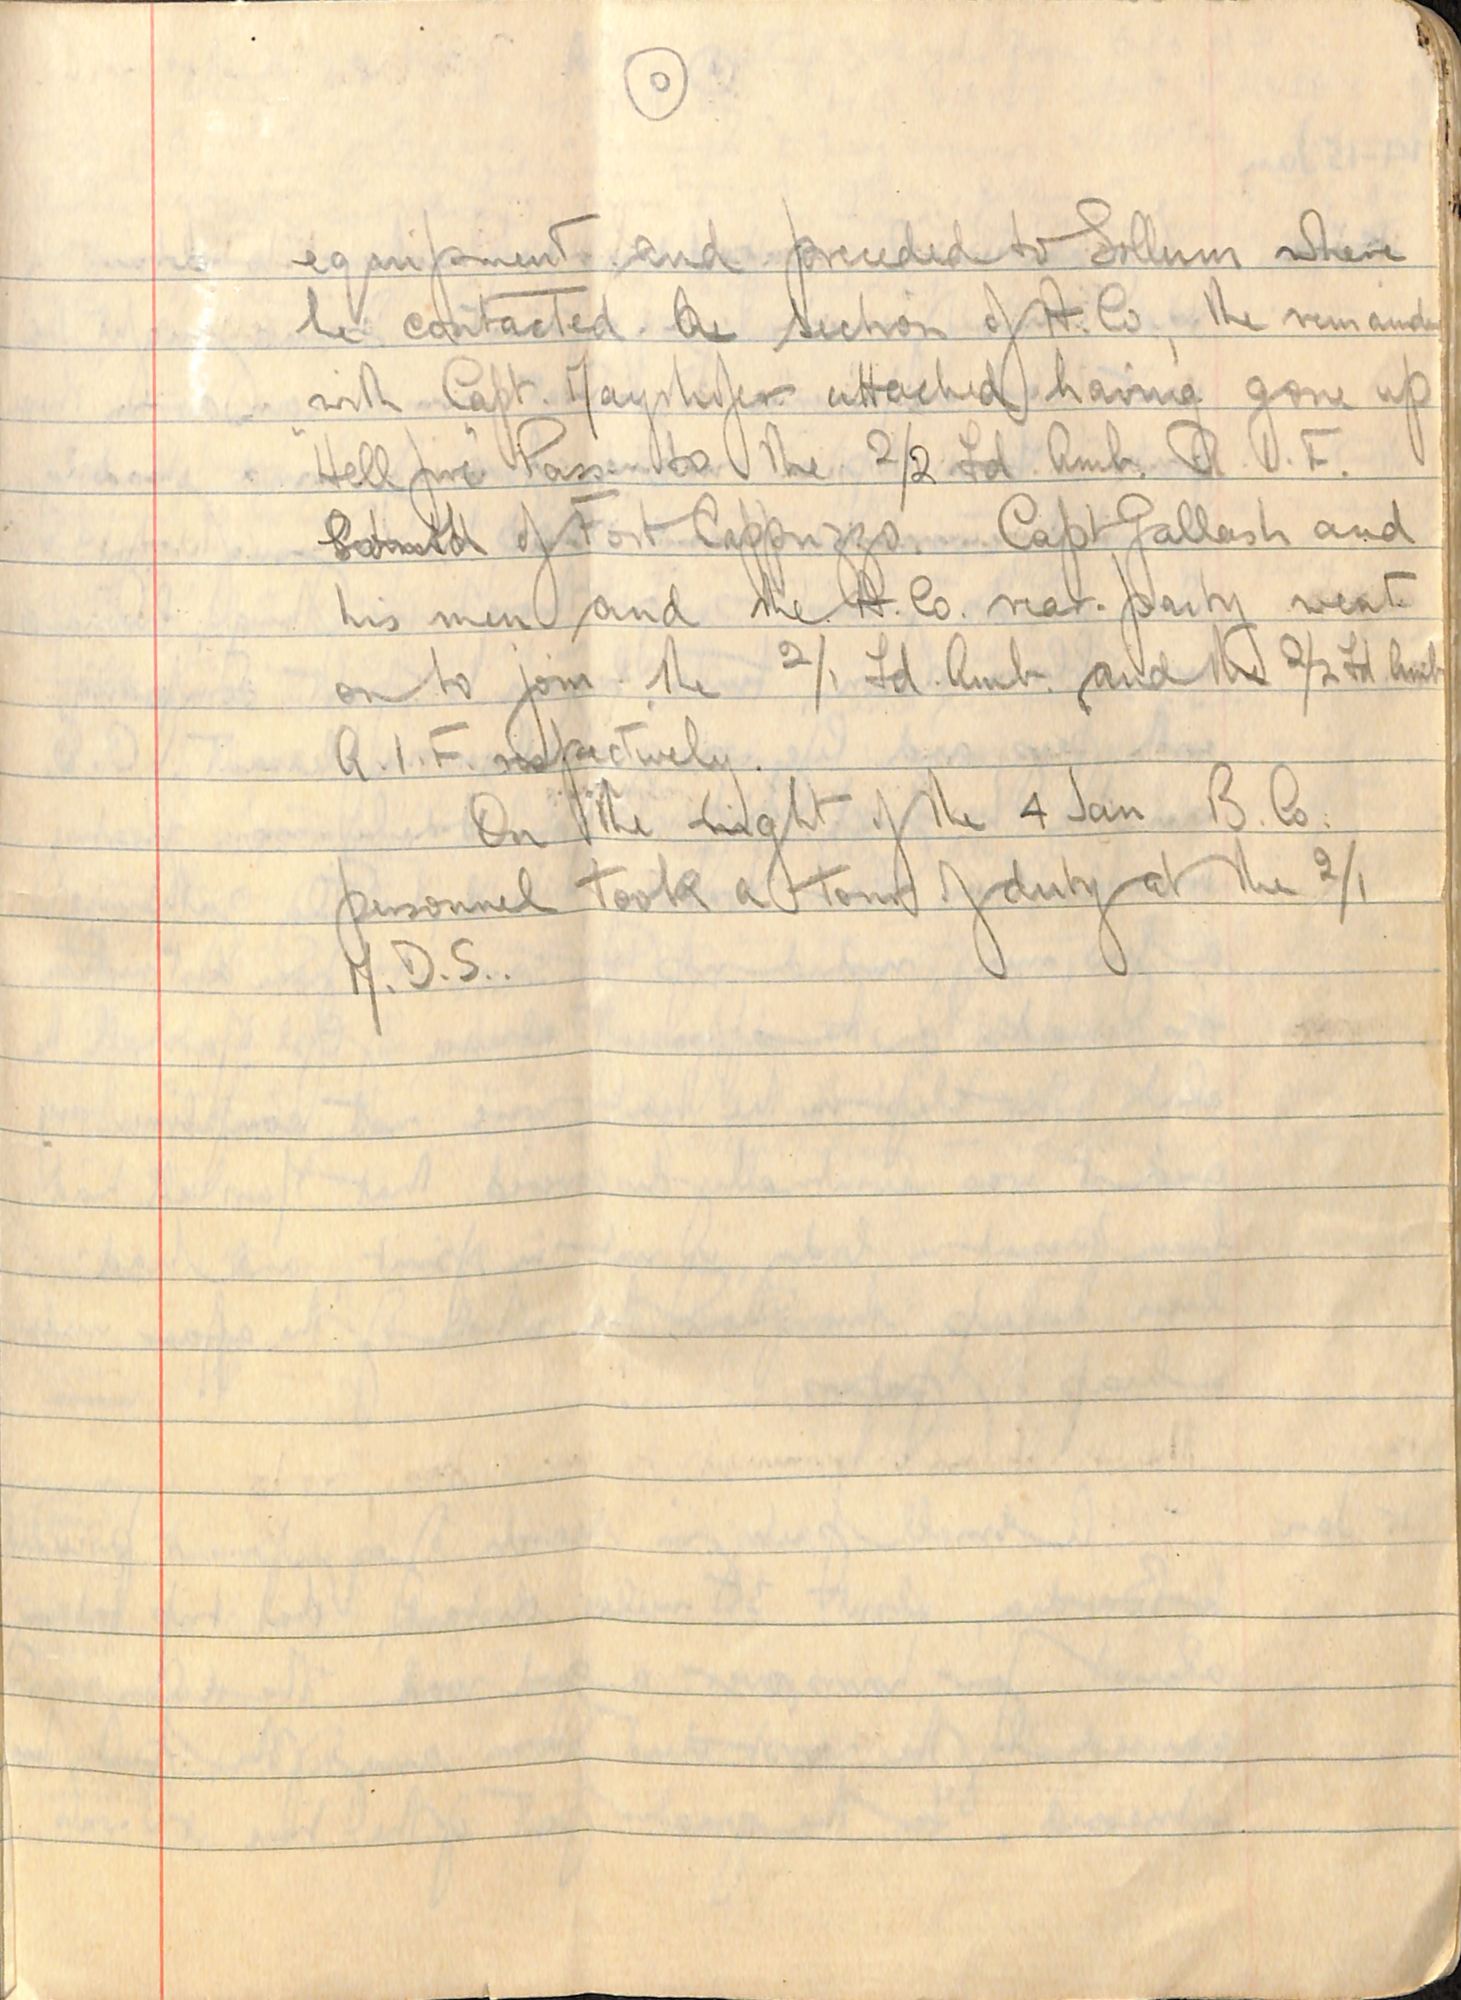 0
equipment and preceded to Sollum where
he contacted the section of A. Co, the remainder
with Capt. Mayrhofer attached having gone up
"Hell fire" Pass to the 2/2 Fd Amb. A.I.F.
of Fort Cappuzzo. Capt Gallash and
his men and the A. Co. rear party went
on to join the 2/1 Fd. Amb. and the 2/2 Fd Amb
A.I.F. respectively.
On the night of the 4 Jan B. Co.
personnel took a tour of duty at the 2/1
M.D.S..